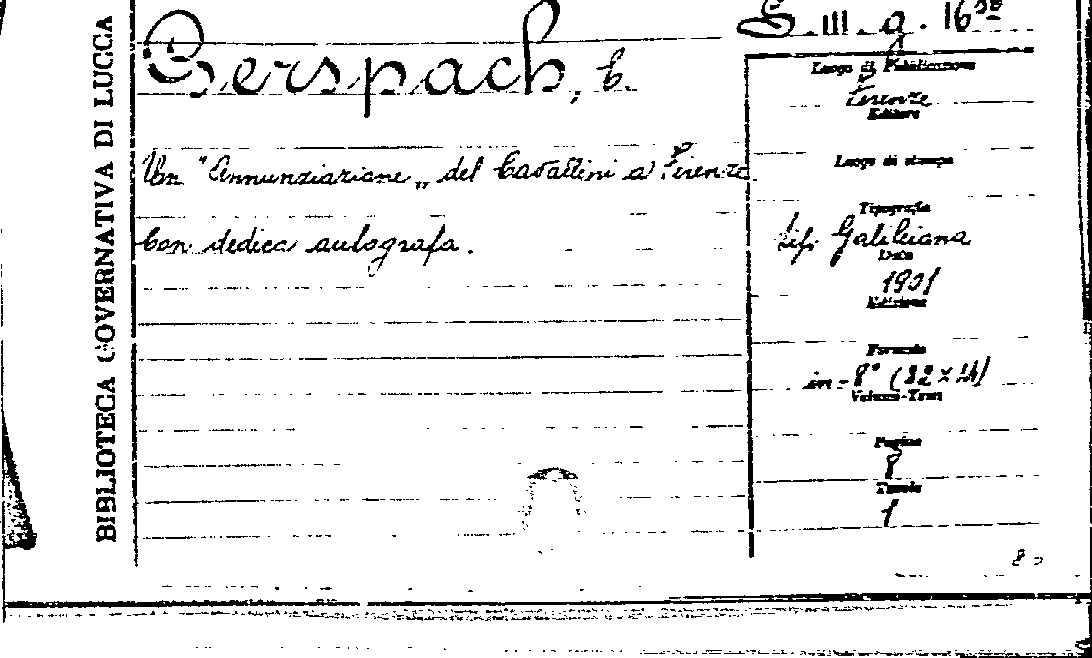 BIBLIOTECA GOVERNATIVA DI LUCCA
S. III. g. 16
Gerspach, E.
Un "Annunziazione„ del Cavallini a Firenze.
Con dedica autografa.
Luogo di Pubblicazione
Firenze
Editore
Luogo di stampa
Tipografia
tip. Galileiana
Data
1901
Edizione
Formato
in-8° (32 x 24)
Volumi-Tomi
Pagine
8
Tavole
1